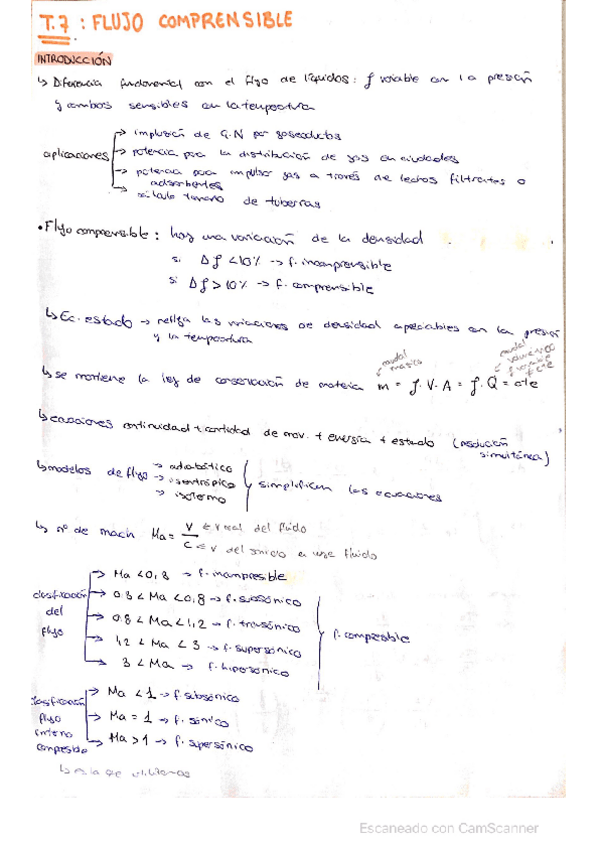 T.7 : FLUJO COMPRENSIBLE
INTRODUCCIÓN
↳ Diferencia fundamental con el flujo de líquidos: ρ variable con la presión
y ambos sensibles con la temperatura
aplicaciones
→ impulsión de G.N por gaseoductos
→ potencia para la distribución de gas en ciudades
→ potencia para impulsar gas a través de lechos filtrantes o
adsorbentes
→ cálculo tamaño de tuberías
• Flujo comprensible: hay una variación de la densidad
si Δρ < 10% → f. incomprensible
si Δρ > 10% → f. comprensible
↳ Ec. estado → refleja las variaciones de densidad apreciables con la presión
y la temperatura
caudal másico
↳ se mantiene la ley de conservación de materia m = ρ. V. A = ρ. Q = cte
↳ ecuaciones continuidad + cantidad de mov. + energía + estado (resolución
simultánea)
↳ modelos de flujo
→ adiabático
→ isentrópico
→ isotermo
simplifican las ecuaciones
↳ nº de mach Ma = V/C
V ← v real del fluido
C ← v del sonido en ese fluido
clasificación del flujo
→ Ma < 0,3 → f. incompresible
→ 0.3 < Ma < 0,8 → f. subsónico
→ 0.8 < Ma < 1,2 → f. transónico
→ 1,2 < Ma < 3 → f. supersónico
→ 3 < Ma → f. hipersónico
f. compresible
clasificación flujo interno compresible
→ Ma < 1 → f. subsónico
→ Ma = 1 → f. sónico
→ Ma > 1 → f. supersónico
↳ es la que utilizamos
Escaneado con CamScanner